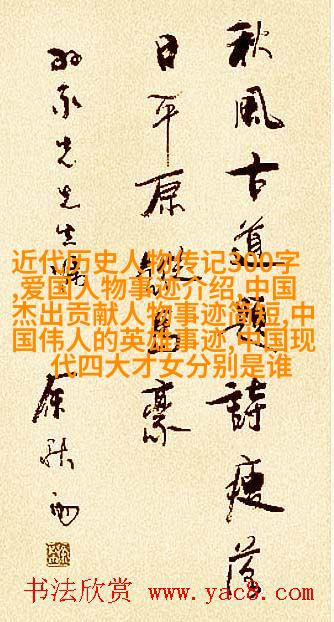 秋風古道題詩瘦落
日平原縱馬豪
永先生
余秋雨
近代历史人物传记300字
,爱国人物事迹介绍,中国
杰出贡献人物事迹简短,中
国伟人的英雄事迹,中国现
代四大才女分别是谁
书法欣赏 www.yac8.com